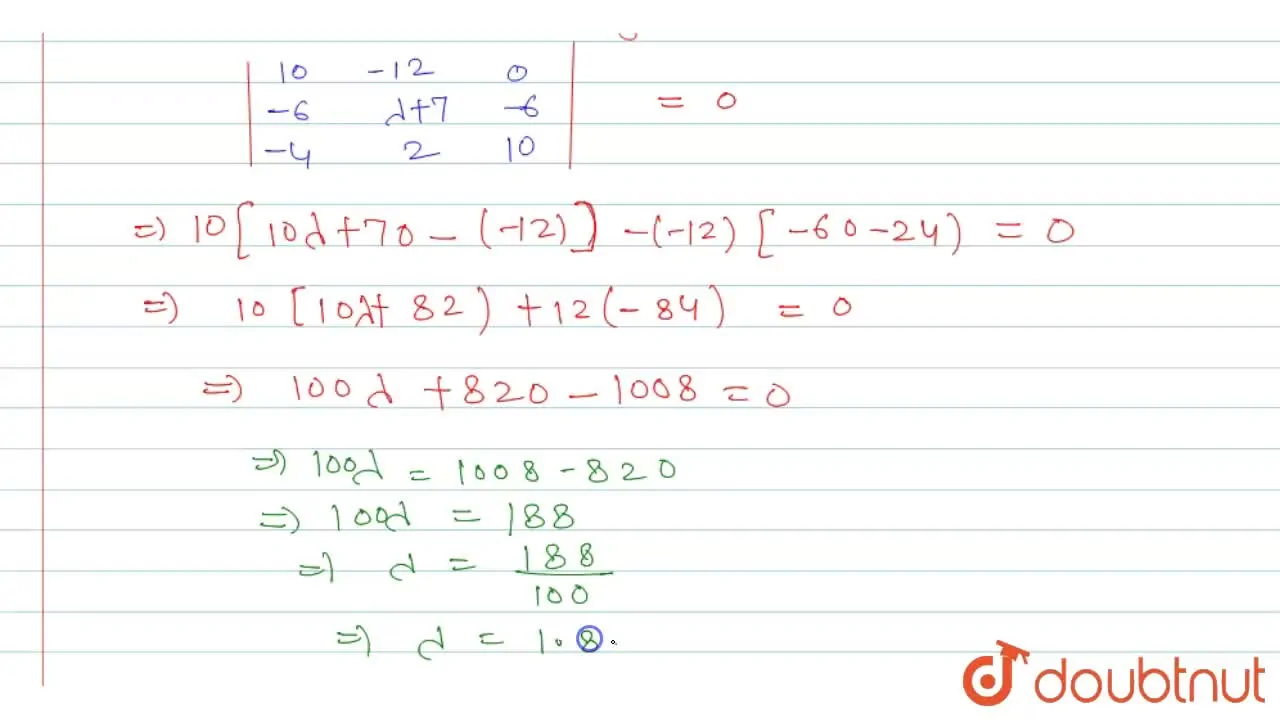 | 10 -12 0 |
| -6 λ+7 -6 | = 0
| -4 2 10 |
=) 10[10λ+70-(-12)] -(-12)[-60-24) = 0
=) 10[10λ+82) +12(-84) = 0
=) 100λ +820-1008=0
=) 100λ = 1008-820
=) 100λ = 188
=) λ = 188/100
=) λ = 1.8
doubtnut